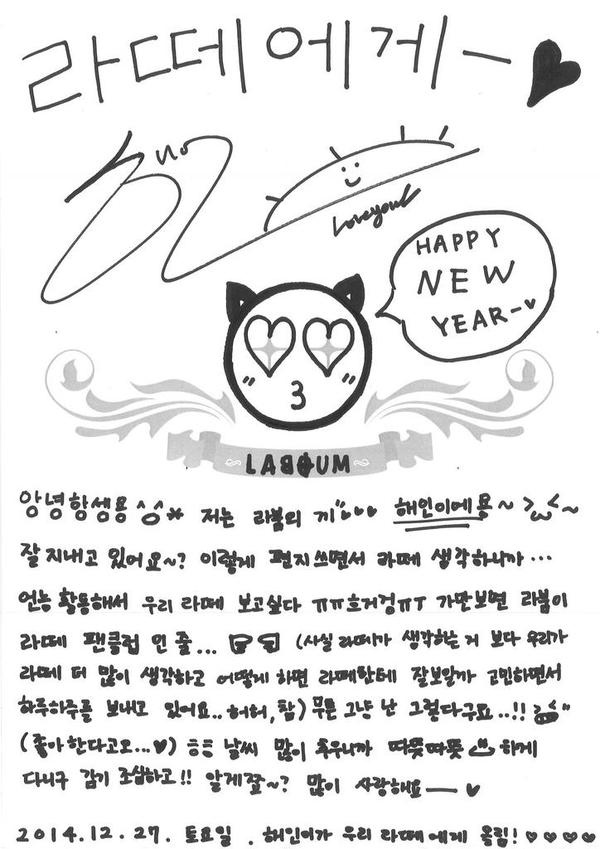 라떼에게 ― ♥
Love you
HAPPY
NEW
YEAR~♥
3
LABOUM
안녕항셍용 ^3^* 저는 라붐의 끼"... 해인이에용~ >ω<~
잘 지내고 있어요~? 이렇게 편지쓰면서 라떼 생각하니까...
언능 활동해서 우리 라떼 보고싶다 ㅠㅠ흐거겅ㅠㅜ 가만보면 라붐이
라떼 팬클럽 인 줄... (사실 라떼가 생각하는 거 보다 우리가
라떼 더 많이 생각하고 어떻게 하면 라떼한테 잘보일까 고민하면서
하루하루를 보내고 있어요.. 허허, 참) 무튼 그냥 난 그렇다구요..!!
(좋아한다고요...♥) ㅎㅎ 날씨 많이 추우니까 따뜻따뜻 하게
다니구 감기 조심하고!! 알게쬬~? 많이 사랑해요― ♥
2014.12.27. 토요일. 해인이가 우리 라떼에게 올림! ♥♥♥♥